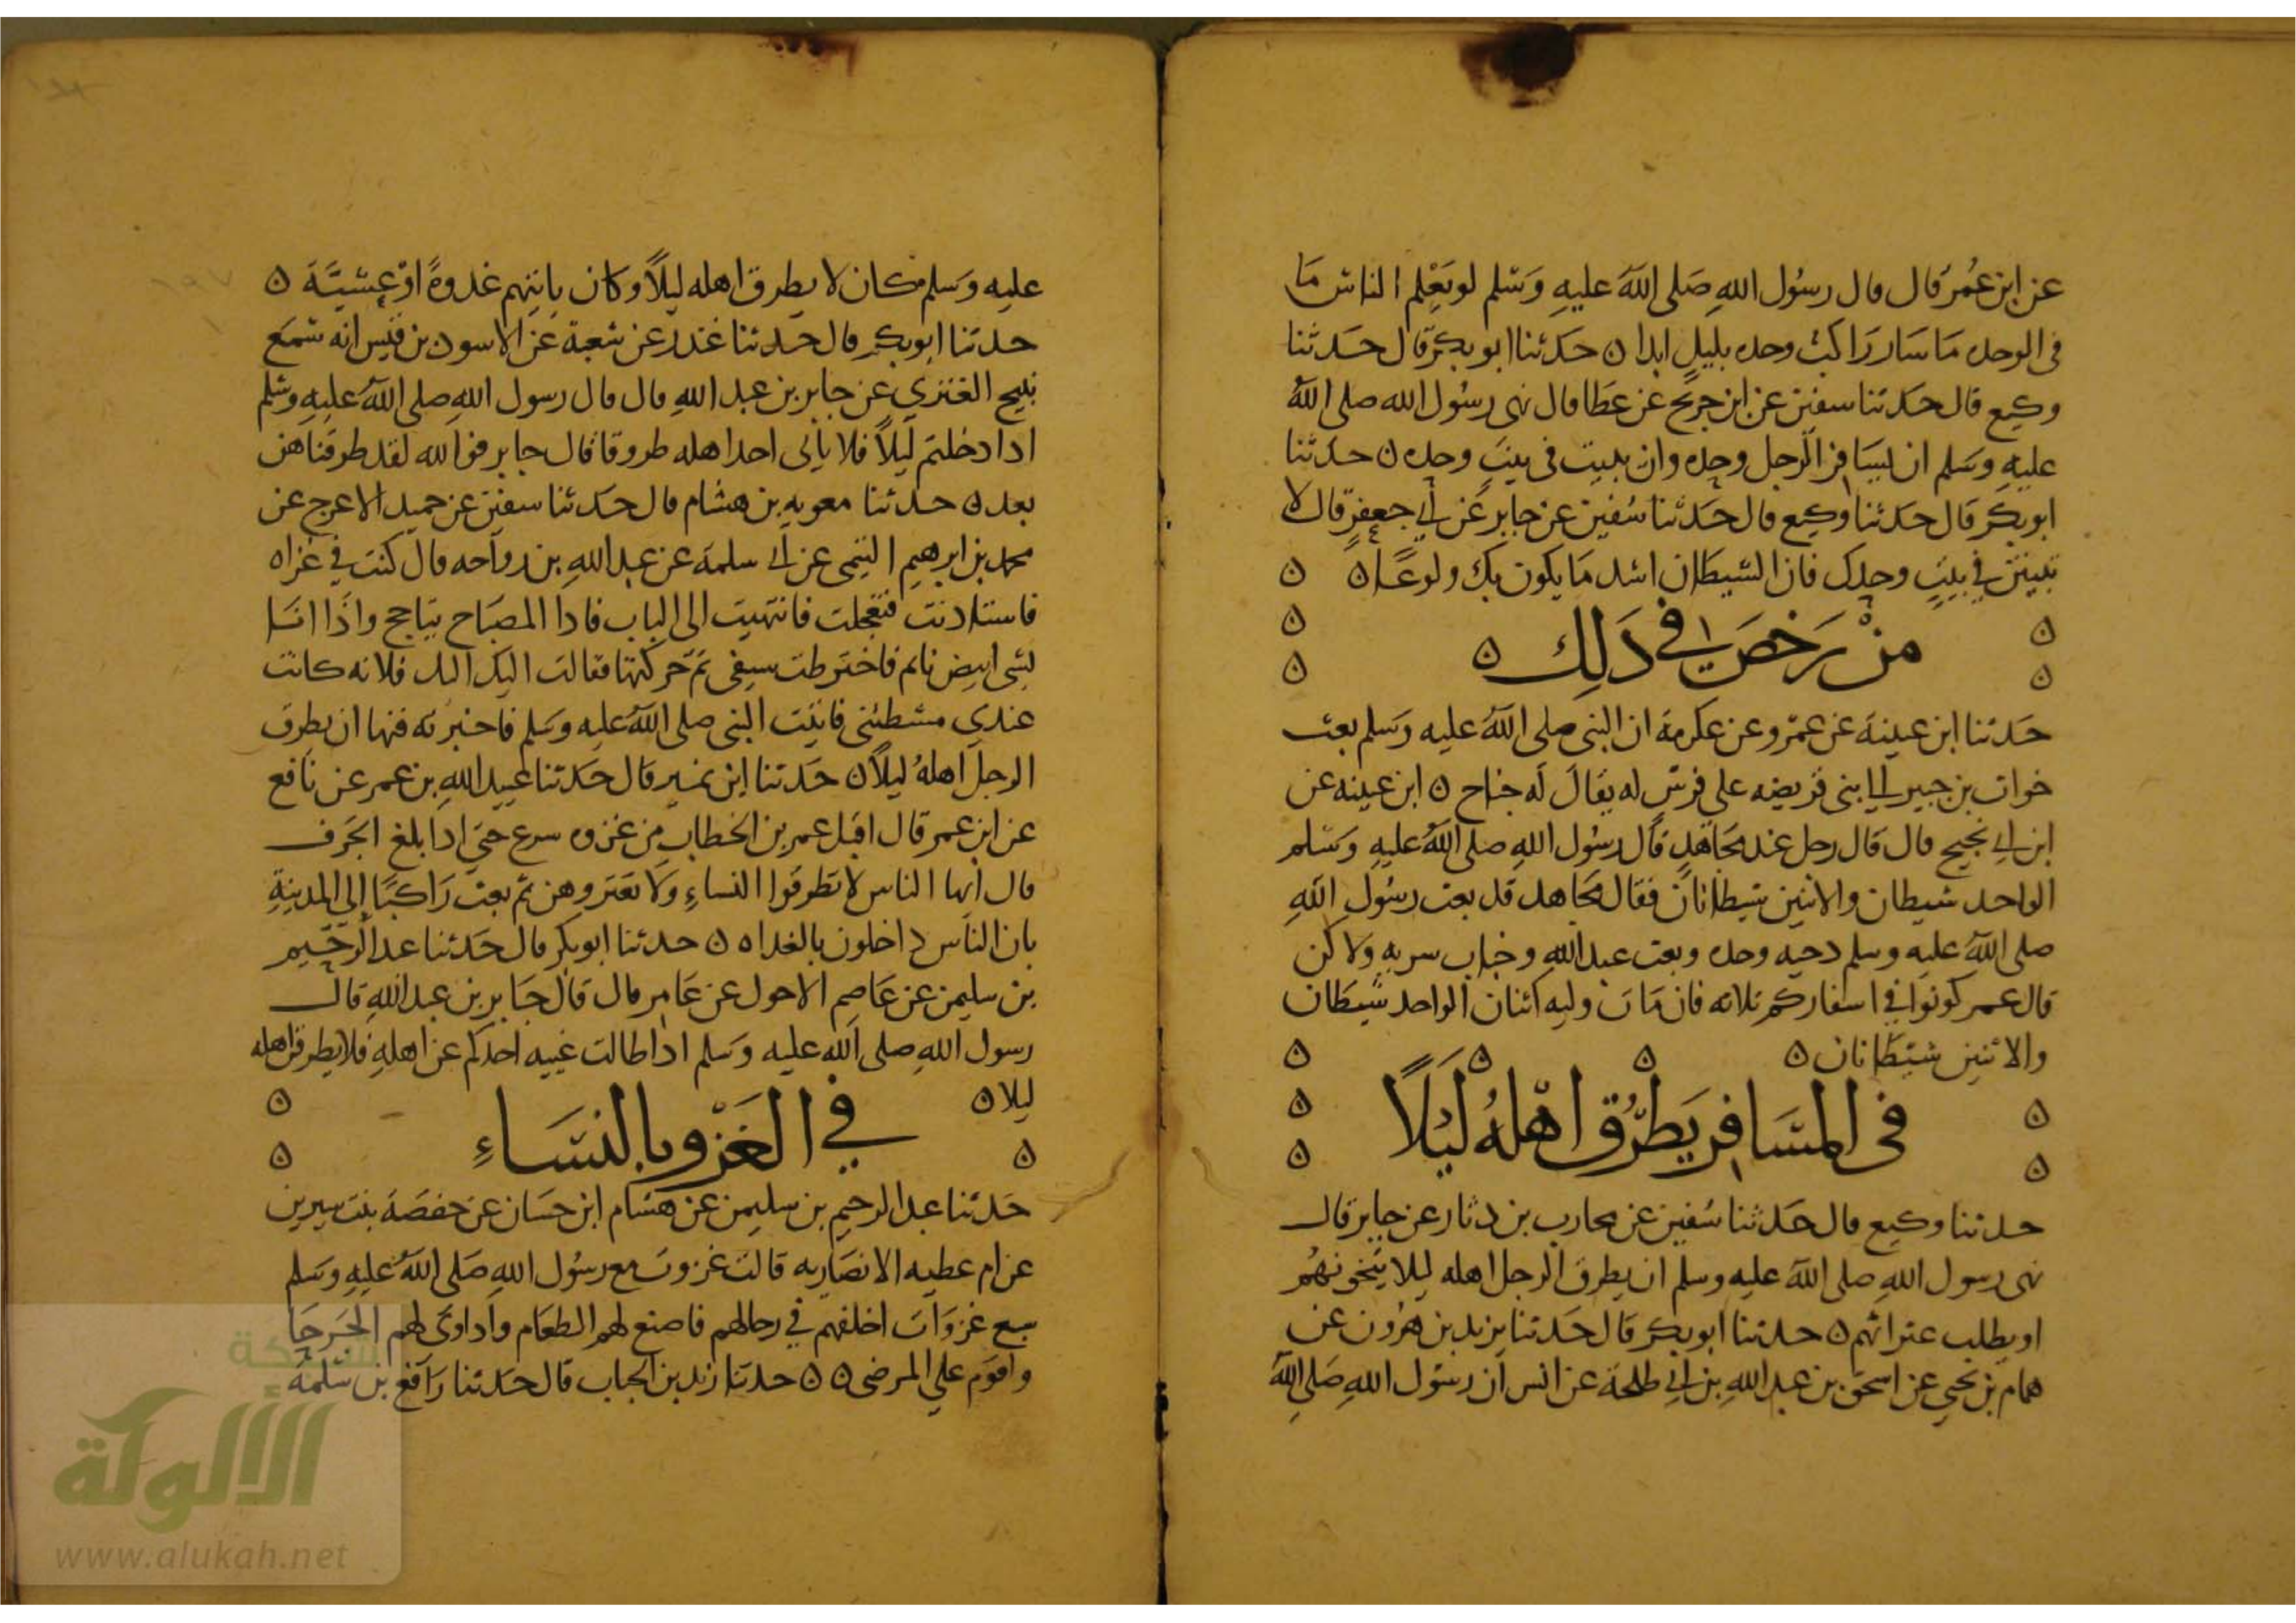 عن ابن عمر قال قال رسول الله صلى الله عليه وسلم لو يعلم الناس ما
في الوحده ما سار راكب وحده بليل ابدا ه حدثنا ابو بكر قال حدثنا
وكيع قال حدثنا سفين عن ابن جريج عن عطا قال نهى رسول الله صلى الله
عليه وسلم ان يسافر الرجل وحده وان يبيت في بيت وحده ه حدثنا
ابو بكر قال حدثنا وكيع قال حدثنا سفين عن جابر عن ابي جعفر قال لا
تبيتن في بيت وحدك فان الشيطان اشد ما يكون بك ولوعا ه ه
من رخص في ذلك ه
حدثنا ابن عيينة عن عمرو عن عكرمة ان النبي صلى الله عليه وسلم بعث
خوات بن جبير الى بني قريضه على فرس له يقال له جناح ه ابن عيينه عن
ابن ابي نجيح قال قال رجل عند مجاهد قال رسول الله صلى الله عليه وسلم
الواحد شيطان والاثنين شيطانان فقال مجاهد قد بعث رسول الله
صلى الله عليه وسلم دحيه وحده وبعث عبد الله وخباب سريه ولاكن
قال عمر كونوا في اسفاركم ثلاثه فان مات وليه اثنان الواحد شيطان
والاثنين شيطانان ه
في المسافر يطرق اهله ليلا
حدثنا وكيع قال حدثنا سفين عن محارب بن دثار عن جابر قال
نهى رسول الله صلى الله عليه وسلم ان يطرق الرجل اهله ليلا يتخونهم
او يطلب عثراتهم ه حدثنا ابو بكر قال حدثنا يزيد بن هرون عن
همام بن يحيى عن اسحق بن عبد الله بن ابي طلحة عن انس ان رسول الله صلى الله
عليه وسلم كان لا يطرق اهله ليلا وكان ياتيهم غدوة او عشية ه
حدثنا ابو بكر قال حدثنا غندر عن شعبة عن الاسود بن قيس انه سمع
نبيح العنزي عن جابر بن عبد الله قال قال رسول الله صلى الله عليه وسلم
اذا دخلتم ليلا فلا ياتي احد اهله طروقا قال جابر فوالله لقد طرقناهن
بعد ه حدثنا معويه بن هشام قال حدثنا سفين عن حميد الاعرج عن
محمد بن ابرهيم التيمي عن ابي سلمة عن عبد الله بن رواحه قال كنت في غزاه
فاستاذنت فتعجلت فانتهيت الى الباب فاذا المصباح يتاجج واذا انا
بشي ابيض نائم فاخترطت سيفي ثم حركتها فقالت اليك اليك فلانه كانت
عندي مشطتني فاتيت النبي صلى الله عليه وسلم فاخبرته فنها ان يطرق
الرجل اهله ليلا ه حدثنا ابن نمير قال حدثنا عبيد الله بن عمر عن نافع
عن ابن عمر قال اقبل عمر بن الخطاب من غزوه سرع حتى اذا بلغ الجرف
قال ايها الناس لا تطرقوا النساء ولا تغتروهن ثم بعث راكبا الى المدينة
بان الناس داخلون بالغداه ه حدثنا ابو بكر قال حدثنا عبد الرحيم
بن سليمن عن عاصم الاحول عن عامر قال قال جابر بن عبد الله قال
رسول الله صلى الله عليه وسلم اذا طالت غيبه احدكم عن اهله فلا يطرقن اهله
ليلا ه
في الغزو بالنساء
حدثنا عبد الرحيم بن سليمن عن هشام ابن حسان عن حفصة بنت سيرين
عن ام عطيه الانصاريه قالت غزوت مع رسول الله صلى الله عليه وسلم
سبع غزوات اخلفهم في رحالهم فاصنع لهم الطعام واداوى لهم الجرحا
واقوم على المرضى ه ه حدثنا زيد بن الحباب قال حدثنا رافع بن سلمة
شبكة
الألوكة
www.alukah.net